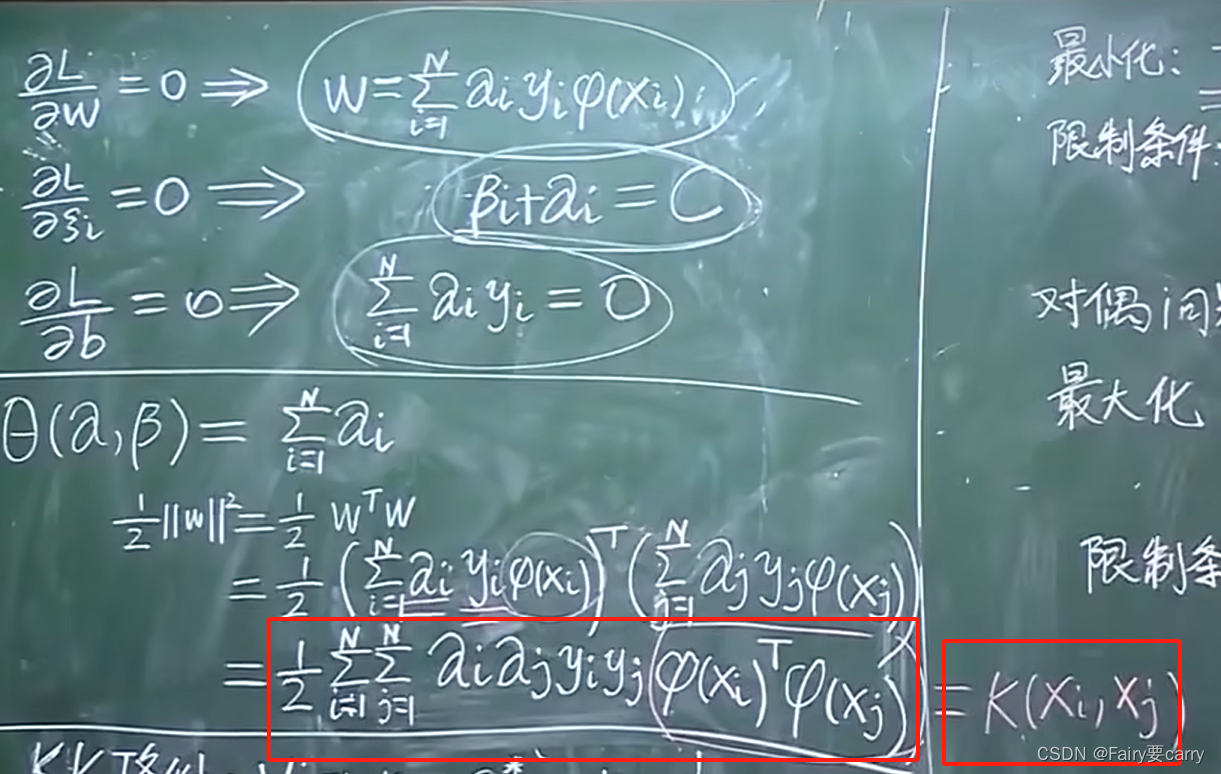 ∂L/∂w = 0 ⇒ w = ∑_{i=1}^{N} α_i y_i φ(x_i)
∂L/∂ξ_i = 0 ⇒ β_i + α_i = C
∂L/∂b = 0 ⇒ ∑_{i=1}^{N} α_i y_i = 0
θ(α,β) = ∑_{i=1}^{N} α_i
1/2 ||w||² = 1/2 w^T w
= 1/2 (∑_{i=1}^{N} α_i y_i φ(x_i))^T (∑_{j=1}^{N} α_j y_j φ(x_j))
= 1/2 ∑_{i=1}^{N} ∑_{j=1}^{N} α_i α_j y_i y_j (φ(x_i)^T φ(x_j)) = K(x_i, x_j)
最小化:
限制条件:
对偶问
最大化
限制
CSDN @Fairy要carry